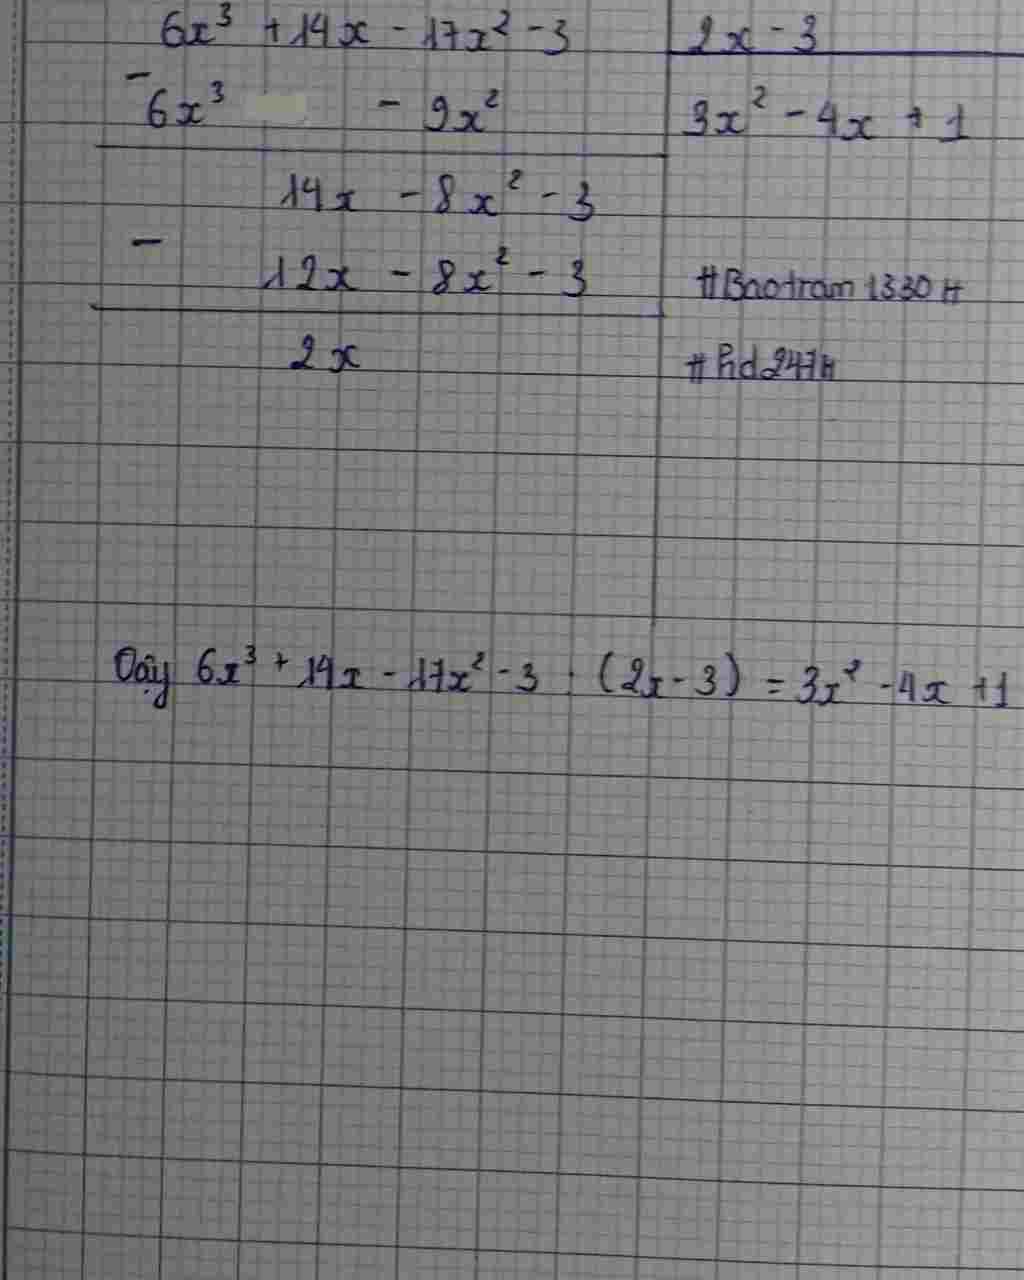 6x³ + 14x - 17x² - 3 2x - 3
-
6x³ - 9x² 3x² - 4x + 1
14x - 8x² - 3
-
12x - 8x² - 3 #Baotram1330#
2x
Vậy 6x³ + 14x - 17x² - 3 : (2x - 3) = 3x² - 4x + 1